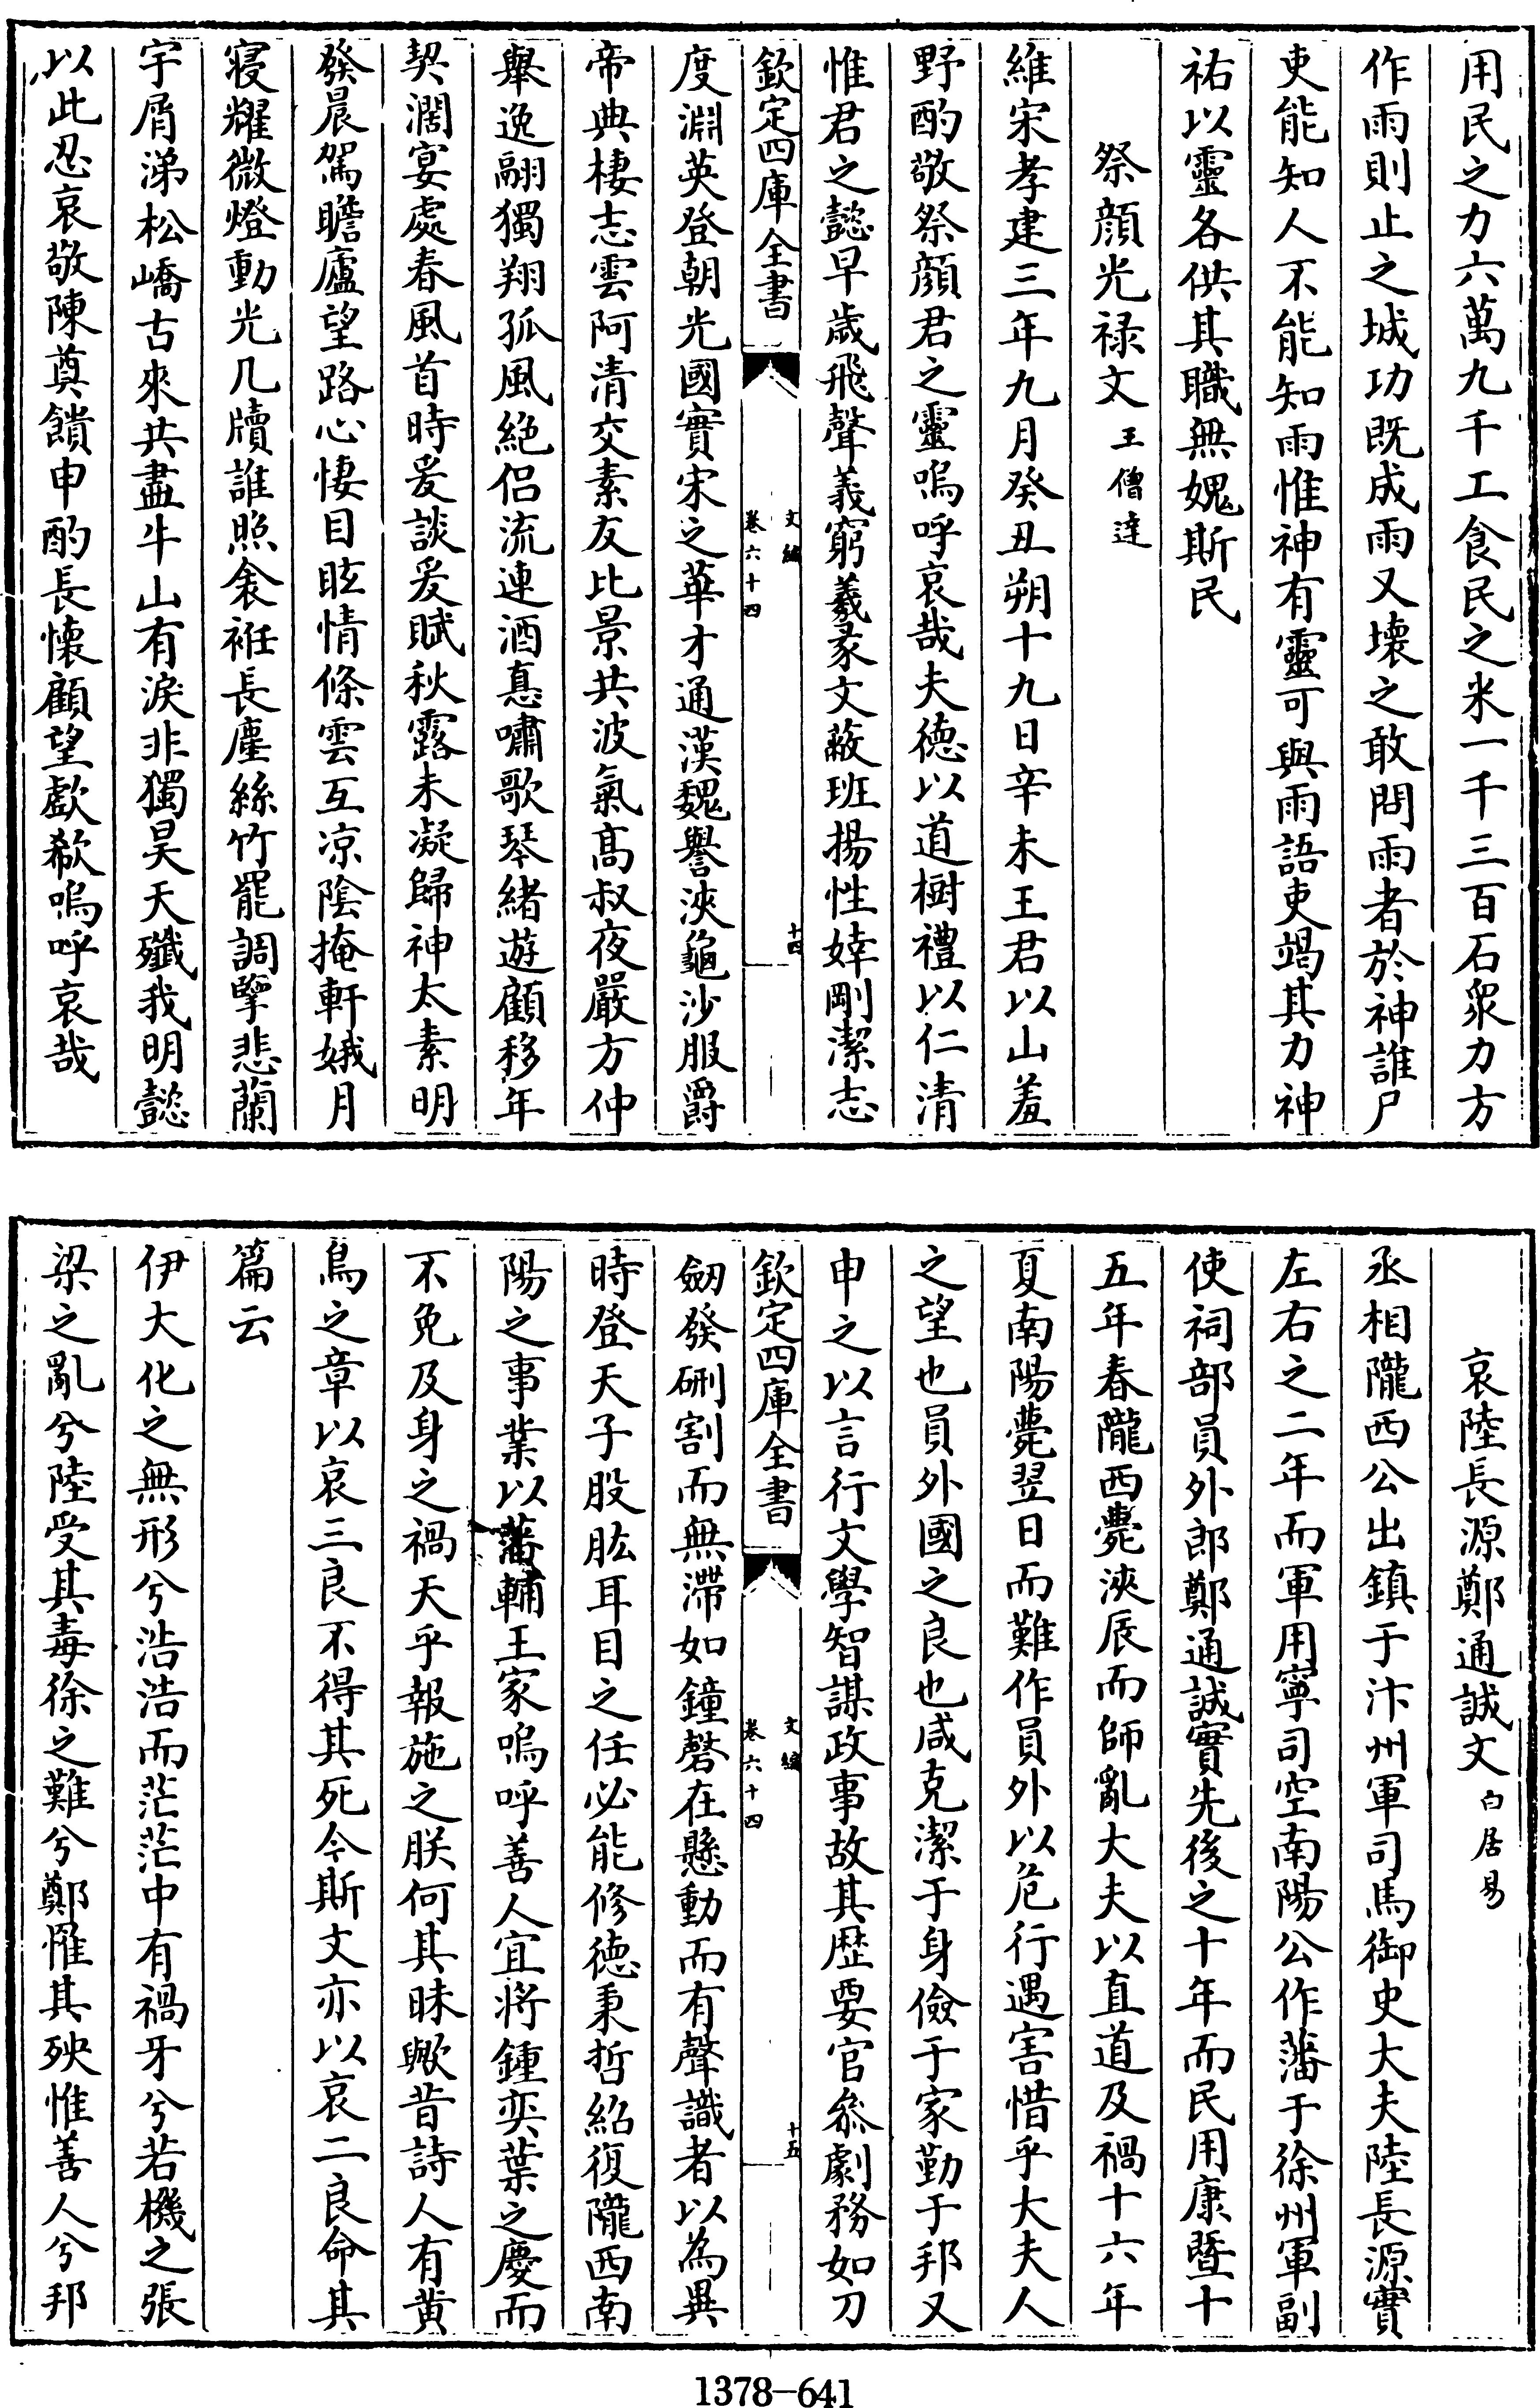 用民之力六萬九千工食民之米一千三百石衆力方
作雨則止之城功既成雨又壞之敢問雨者於神誰尸
吏能知人不能知雨惟神有靈可與雨語吏竭其力神
祐以靈各供其職無媿斯民
祭顔光禄文 王僧達
維宋孝建三年九月癸丑朔十九日辛未王君以山羞
野酌敬祭顔君之靈嗚呼哀哉夫徳以道樹禮以仁清
惟君之懿早歲飛聲義窮羲彖文蔽班揚性婞剛潔志
欽定四庫全書
文編
卷六十四
十四
度淵英登朝光國實宋之華才通漢魏譽浹龜沙服爵
帝典棲志雲阿清交素友比景共波氣髙叔夜嚴方仲
舉逸翮獨翔孤風絶侣流連酒悳嘯歌琴緒遊顧移年
契濶宴處春風首時爰談爰賦秋露未凝歸神太素明
發晨駕瞻廬望路心悽目眩情條雲互凉陰掩軒娥月
寢耀微燈動光几牘誰照衾衽長塵絲竹罷調擥悲蘭
宇屑涕松嶠古來共盡牛山有淚非獨昊天殲我明懿
以此忍哀敬陳奠饋申酌長懷顧望歔欷嗚呼哀哉
哀陸長源鄭通誠文 白居易
丞相隴西公出鎮于汴州軍司馬御史大夫陸長源實
左右之二年而軍用寧司空南陽公作藩于徐州軍副
使祠部員外郎鄭通誠實先後之十年而民用康曁十
五年春隴西薨浹辰而師亂大夫以直道及禍十六年
夏南陽薨翌日而難作員外以危行遇害惜乎大夫人
之望也員外國之良也咸克潔于身儉于家勤于邦又
申之以言行文學智謀政事故其歴要官叅劇務如刀
欽定四庫全書
文編
卷六十四
十五
劒發硎割而無滯如鐘磬在懸動而有聲識者以為異
時登天子股肱耳目之任必能修徳秉哲紹復隴西南
陽之事業以藩輔王家嗚呼善人宜將鍾奕葉之慶而
不免及身之禍天乎報施之朕何其昧歟昔詩人有黄
鳥之章以哀三良不得其死今斯文亦以哀二良命其
篇云
伊大化之無形兮浩浩而茫茫中有禍牙兮若機之張
梁之亂兮陸受其毒徐之難兮鄭罹其殃惟善人兮邦
1378-641